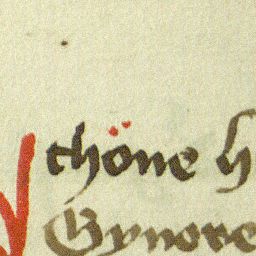 thöne h
Gynore